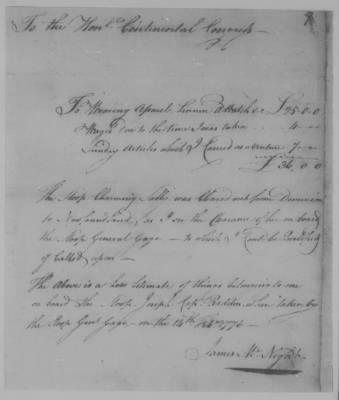 To the Hon.ble Continental Congress
To Wearing Apparel Linnen & Watch &c £25.0.0
Wages due to the time I was taken 4
Sundry Articles which I Carried as a Venture 7
£ 36,0,0
The Sloop Charming Sallie was Cleared out from Dominica
to Newfoundland, for I saw the Clearance of her on board
the Sloop General Gage — to which I Could be Qualified
if Called upon —
The Above is a Low Estimate of things belonging to me
on board the Sloop Joseph Cap.t when taken by
the Sloop Gen.l Gage on the 14th 1776 —
James McNight